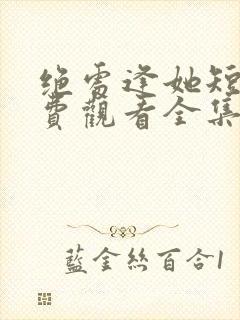 绝雪逢她短
費觀看全集
藍金絲百合1